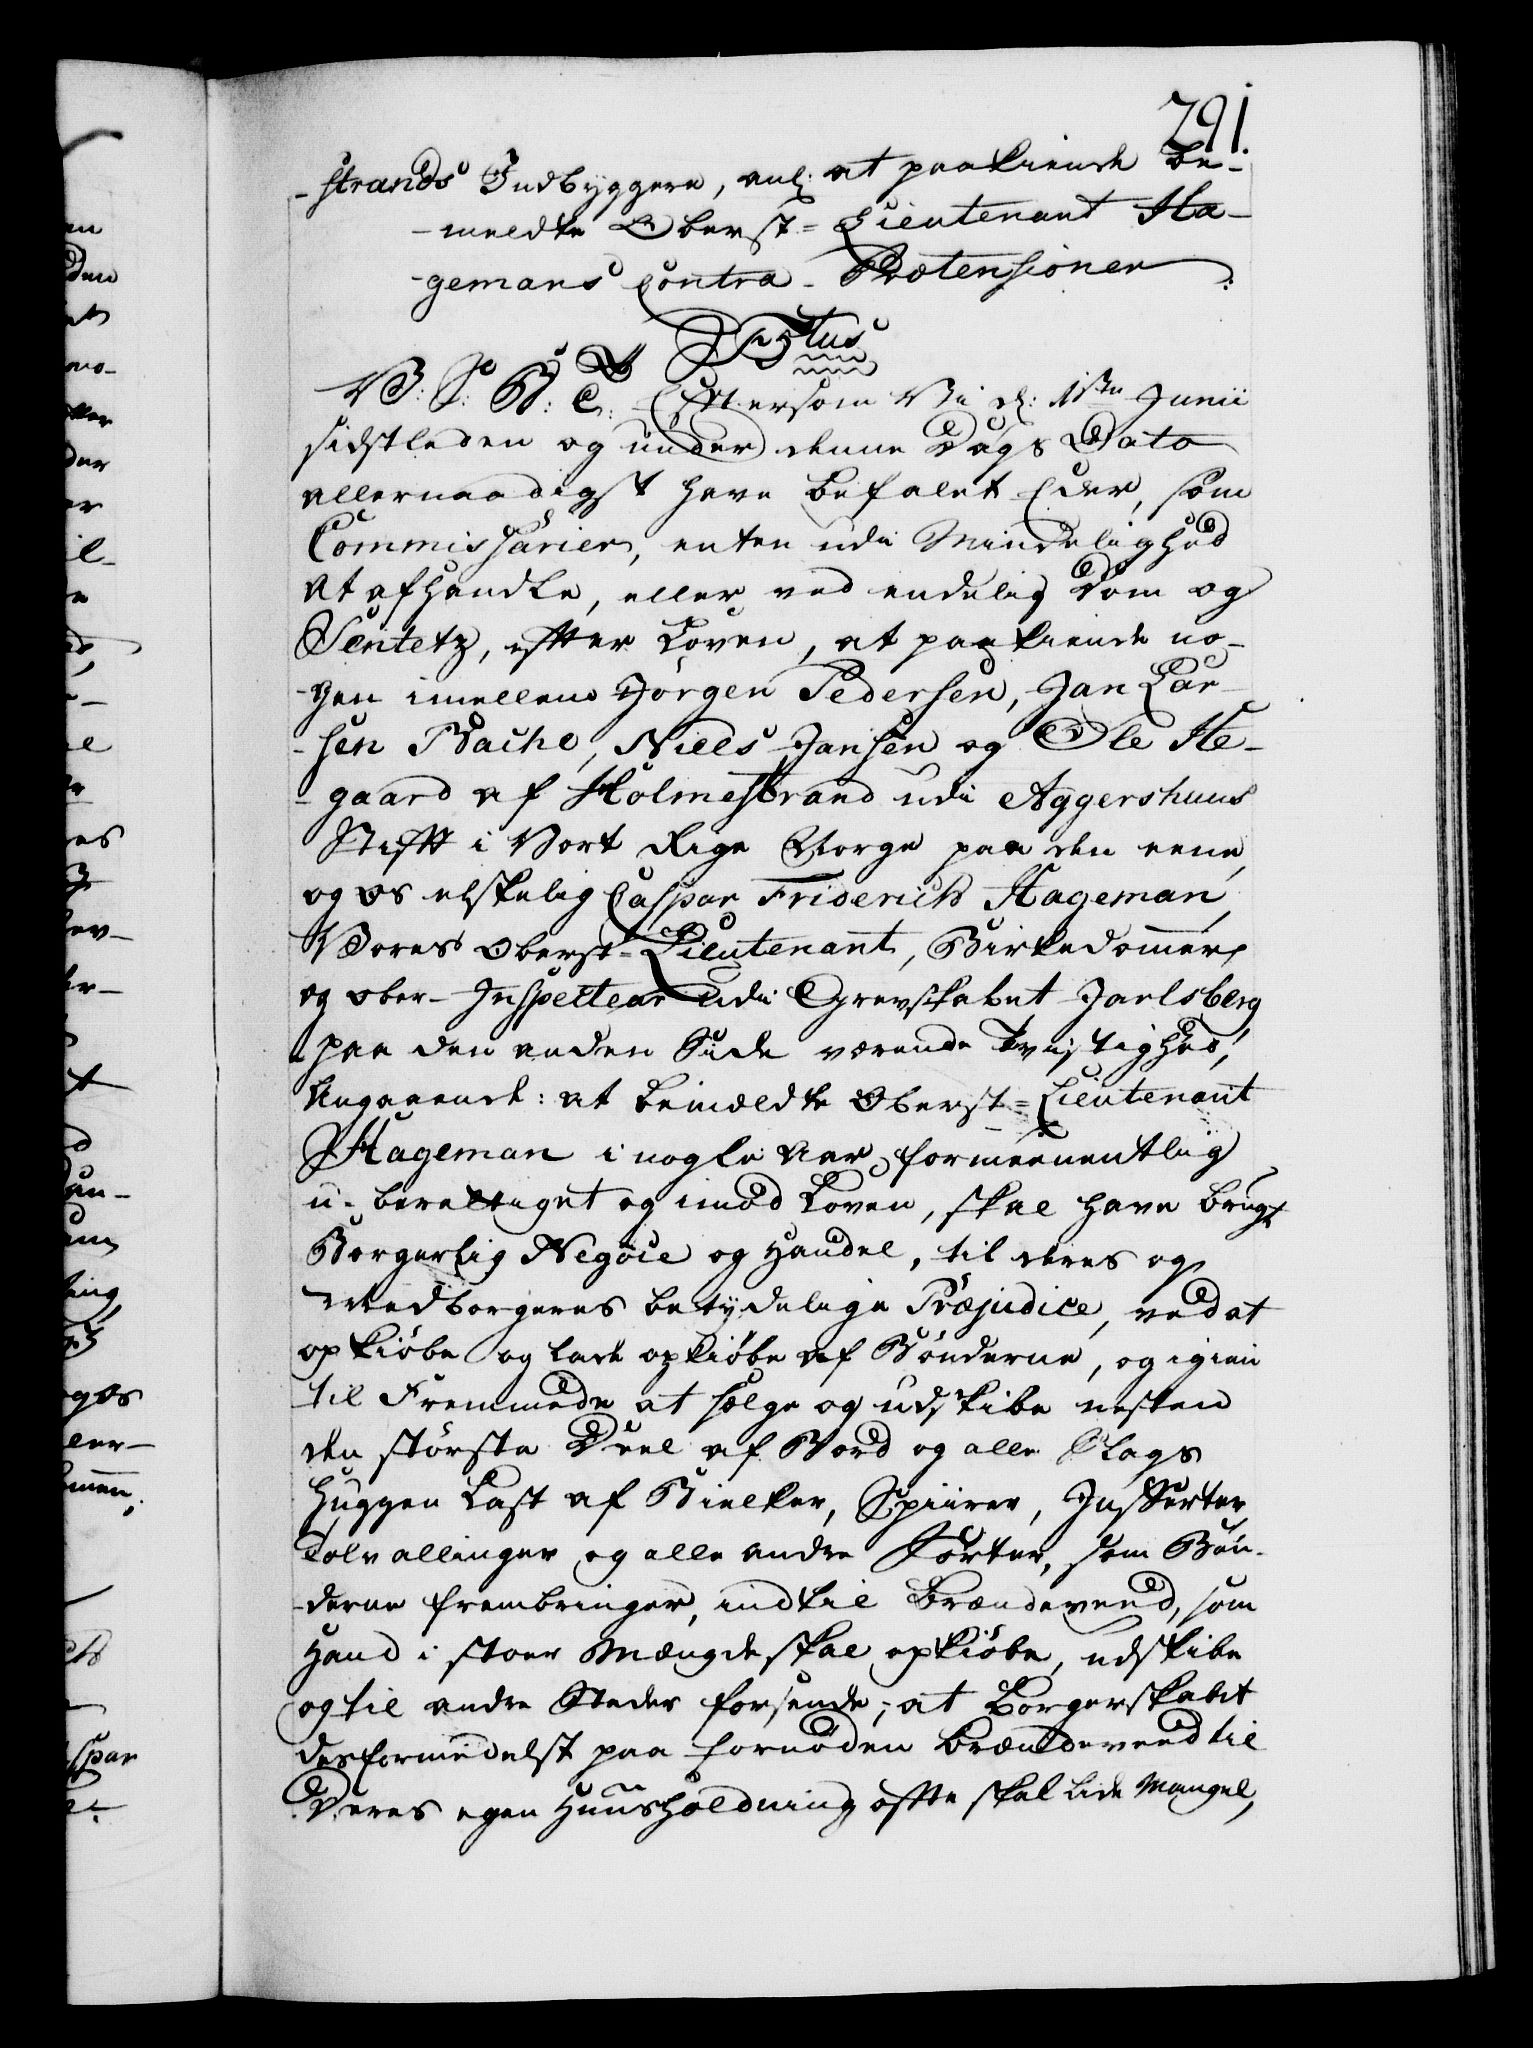 291.
-strands Indbyggere, anl: at paakiende be-
-meldte Oberst-Lieutenant Ha-
-gemans Contra-Prætensioner.
C 5tus
V: S: G: T: Eftersom Vi d: 1ste Junii
sidstleden og under denne Dags Dato
allernaadigst have befalet Eder, som
Commissarier, enten udi Mindelighed
at afhandle, eller ved endelig Dom og
Sentetz, efter Loven, at paakiende no-
-gen imellem Jörgen Pedersen, Jan Lar-
-sen Bache, Niels Jansen og Ole He-
-gaard af Holmestrand udi Aggershuus
Stift i Vort Rige Norge paa den eene,
og os elskelig Caspar Friderich Hageman,
Vores Oberst-Lieutenant, Birkedommer
og Ober-Inspecteur udi Grevskabet Jarlsberg
paa den anden Side værende Tvistighed,
Angaaende: at bemeldte Oberst-Lieutenant
Hageman i nogle Aar, formeenentlig
u-berettiget og imod Loven, skal have brugt
Borgerlig Negoce og Handel, til deres og
Medborgeres betydelige Præjudice, ved at
opkiöbe og lade opkiöbe af Bönderne, og igien
til Fremmede at sælge og udskibe nesten
den störste Deel af Bord og alle Slags
huggen Last af Bielker, Spiirer, Juffertter,
Tolv allinger og alle andre Sorter, som Bön-
-derne frembringer, indtil Brændeveed, som
Hand i stoer Mængde skal opkiöbe, udskibe
og til andre Steder forsende; at Borgerskabet
desformedelst paa fornöden Brændeveed til
Deres egen Huusholdning ofte skal lide Mangel,